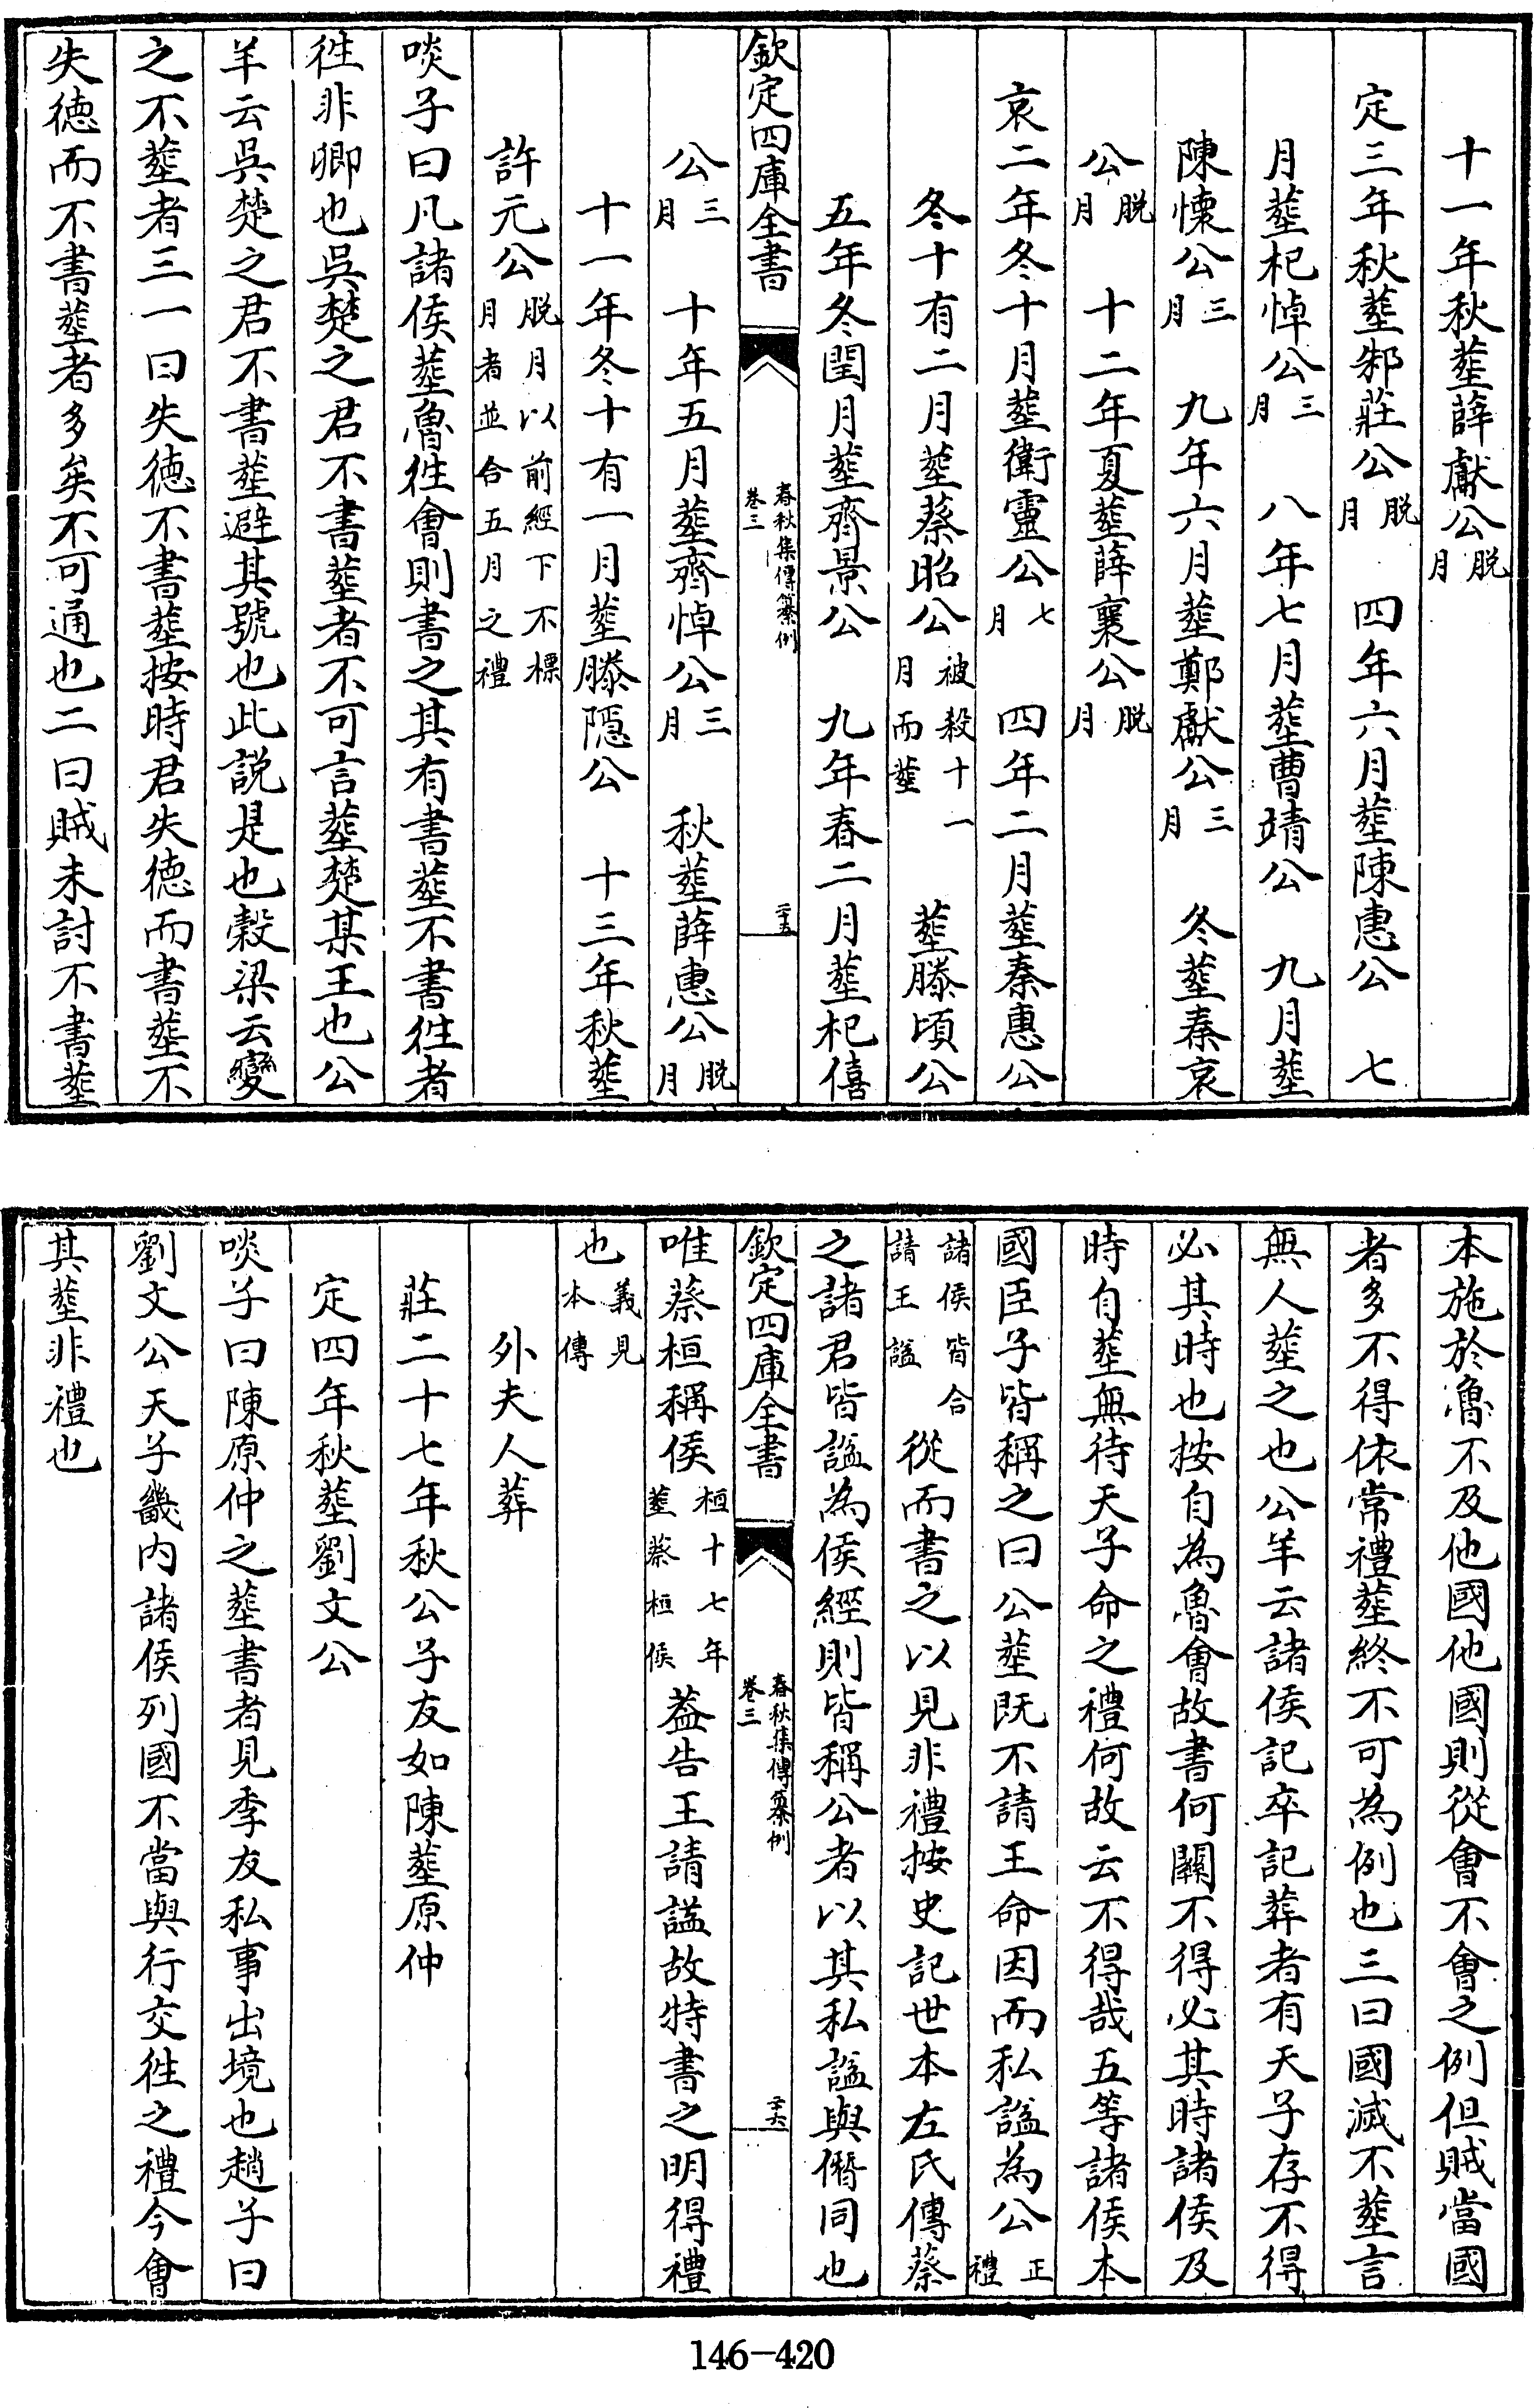 十一年秋塟薛獻公脱月
定三年秋塟邾莊公脱月　四年六月塟陳惠公　七
月塟杞悼公三月　八年七月塟曹靖公　九月塟
陳懷公三月　九年六月塟鄭獻公三月　冬塟秦哀
公脱月　十二年夏塟薛襄公脱月
哀二年冬十月塟衛靈公七月　四年二月塟秦惠公
冬十有二月塟蔡昭公被殺十一月而塟　塟滕頃公
五年冬閏月塟齊景公　九年春二月塟杞僖
欽定四庫全書　春秋集傳纂例卷三　二十五
公三月　十年五月塟齊悼公三月　秋塟薛惠公脱月
十一年冬十有一月塟滕隱公　十三年秋塟
許元公脱月以前經下不標月者並合五月之禮
啖子曰凡諸侯塟魯徃會則書之其有書塟不書徃者
徃非卿也吳楚之君不書塟者不可言塟楚某王也公
羊云吳楚之君不書塟避其號也此説是也穀梁云變
之不塟者三一曰失徳不書塟按時君失徳而書塟不
失徳而不書塟者多矣不可通也二曰賊未討不書塟
本施於魯不及他國他國則從會不會之例但賊當國
者多不得依常禮塟終不可為例也三曰國滅不塟言
無人塟之也公羊云諸侯記卒記葬者有天子存不得
必其時也按自為魯會故書何關不得必其時諸侯及
時自塟無待天子命之禮何故云不得哉五等諸侯本
國臣子皆稱之曰公塟既不請王命因而私諡為公正禮
諸侯皆合請王諡從而書之以見非禮按史記世本左氏傳蔡
之諸君皆諡為侯經則皆稱公者以其私諡與僭同也
欽定四庫全書　春秋集傳纂例卷三　二十六
唯蔡桓稱侯桓十七年塟蔡桓侯葢告王請諡故特書之明得禮
也義見本傳
外夫人葬
莊二十七年秋公子友如陳塟原仲
定四年秋塟劉文公
啖子曰陳原仲之塟書者見季友私事出境也趙子曰
劉文公天子畿内諸侯列國不當與行交徃之禮今會
其塟非禮也
146-420